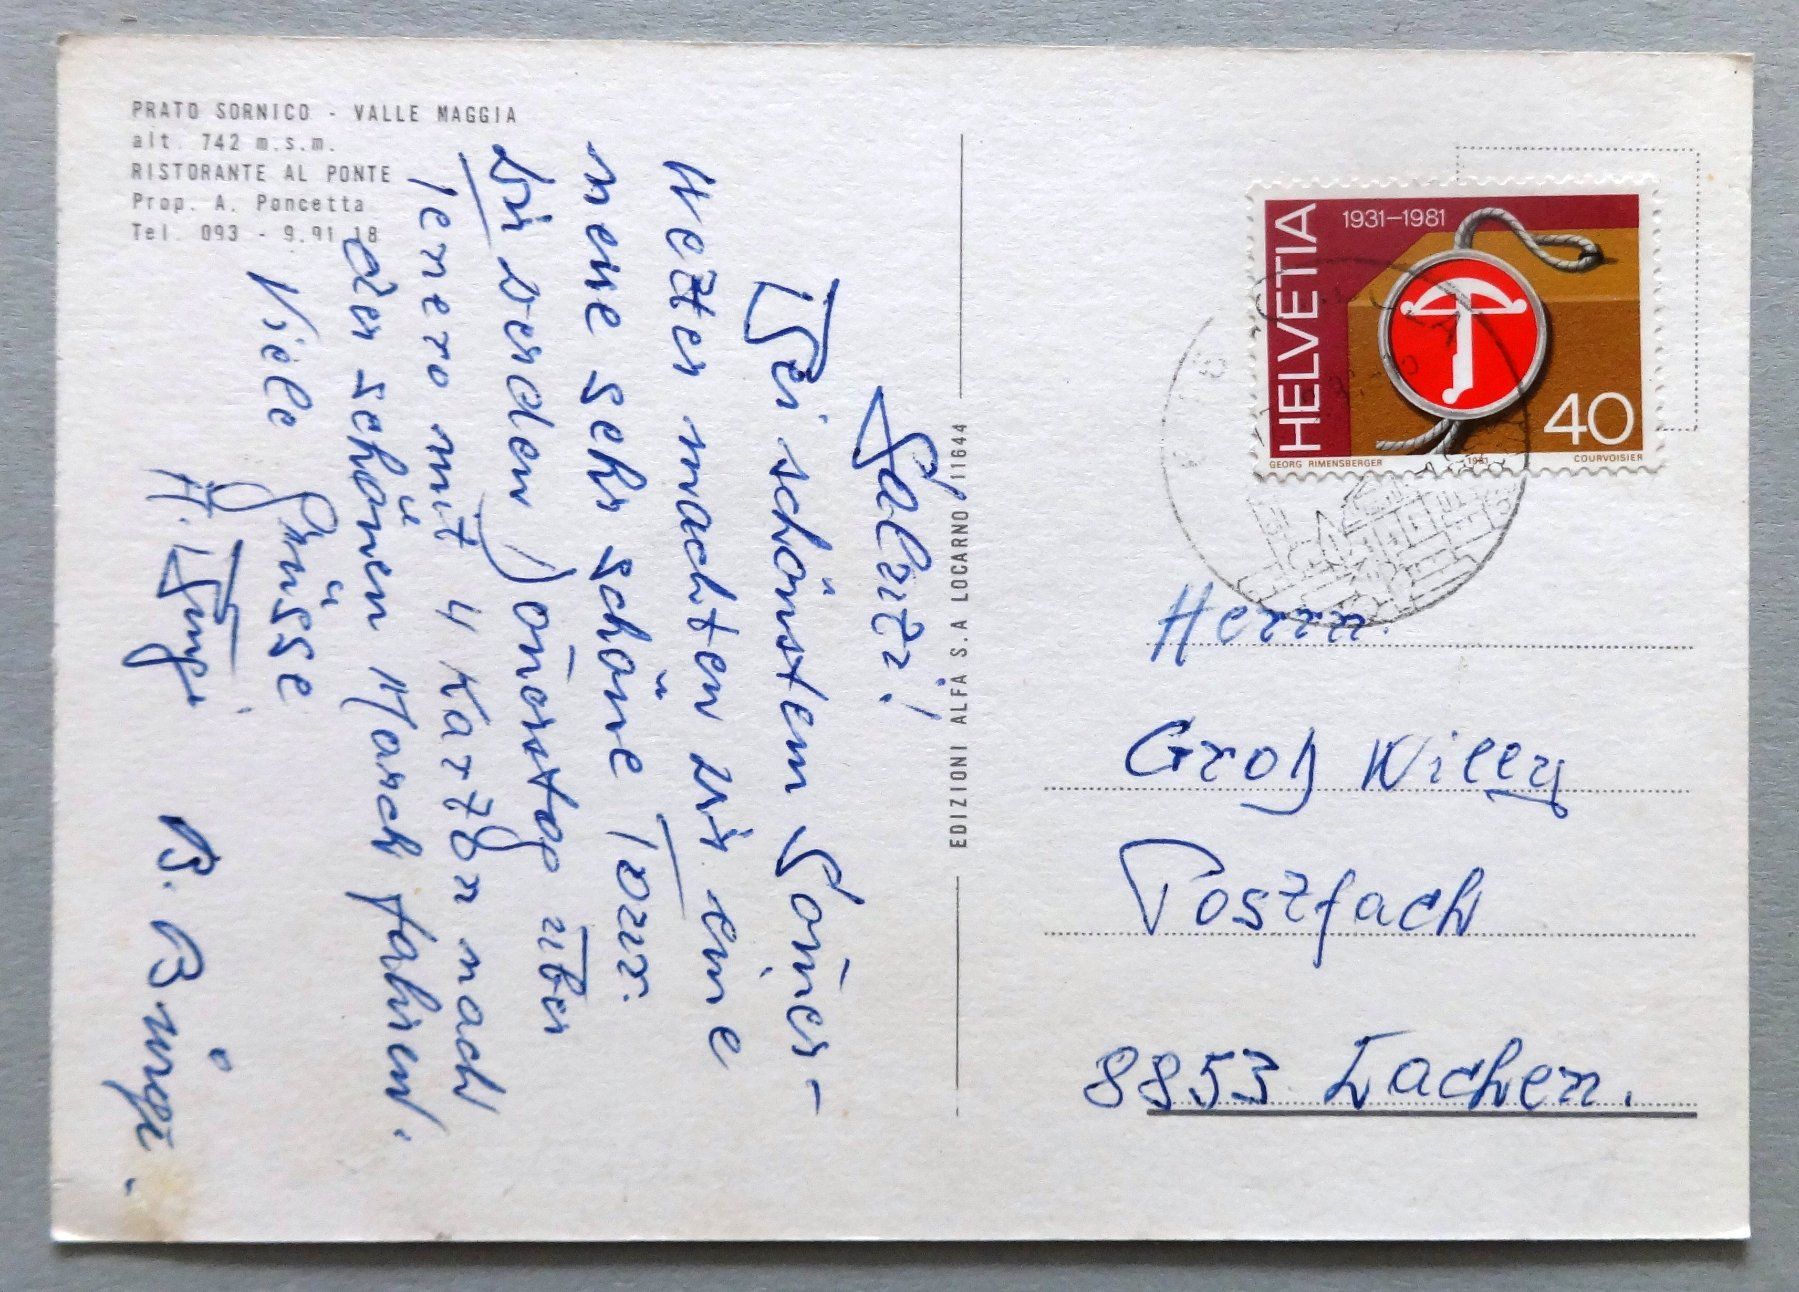 PRATO SORNICO - VALLE MAGGIA
alt. 742 m.s.m.
RISTORANTE AL PONTE
Prop. A. Poncetta
Tel. 093 - 9.91.18
Salutz!
Bei schönstem Som̄er-
Wetter machten wir eine
neue sehr schöne Tour.
Wir werden
mit 4 nach
der schönen March fahren.
Viele Grüsse
A. Bürgi
B. Bürgi.
EDIZIONI ALFA S.A LOCARNO 11644
HELVETIA
1931–1981
40
GEORG RIMENSBERGER
1981
COURVOISIER
Herrn.
Groß Willy
Postfach
8853 Lachen.